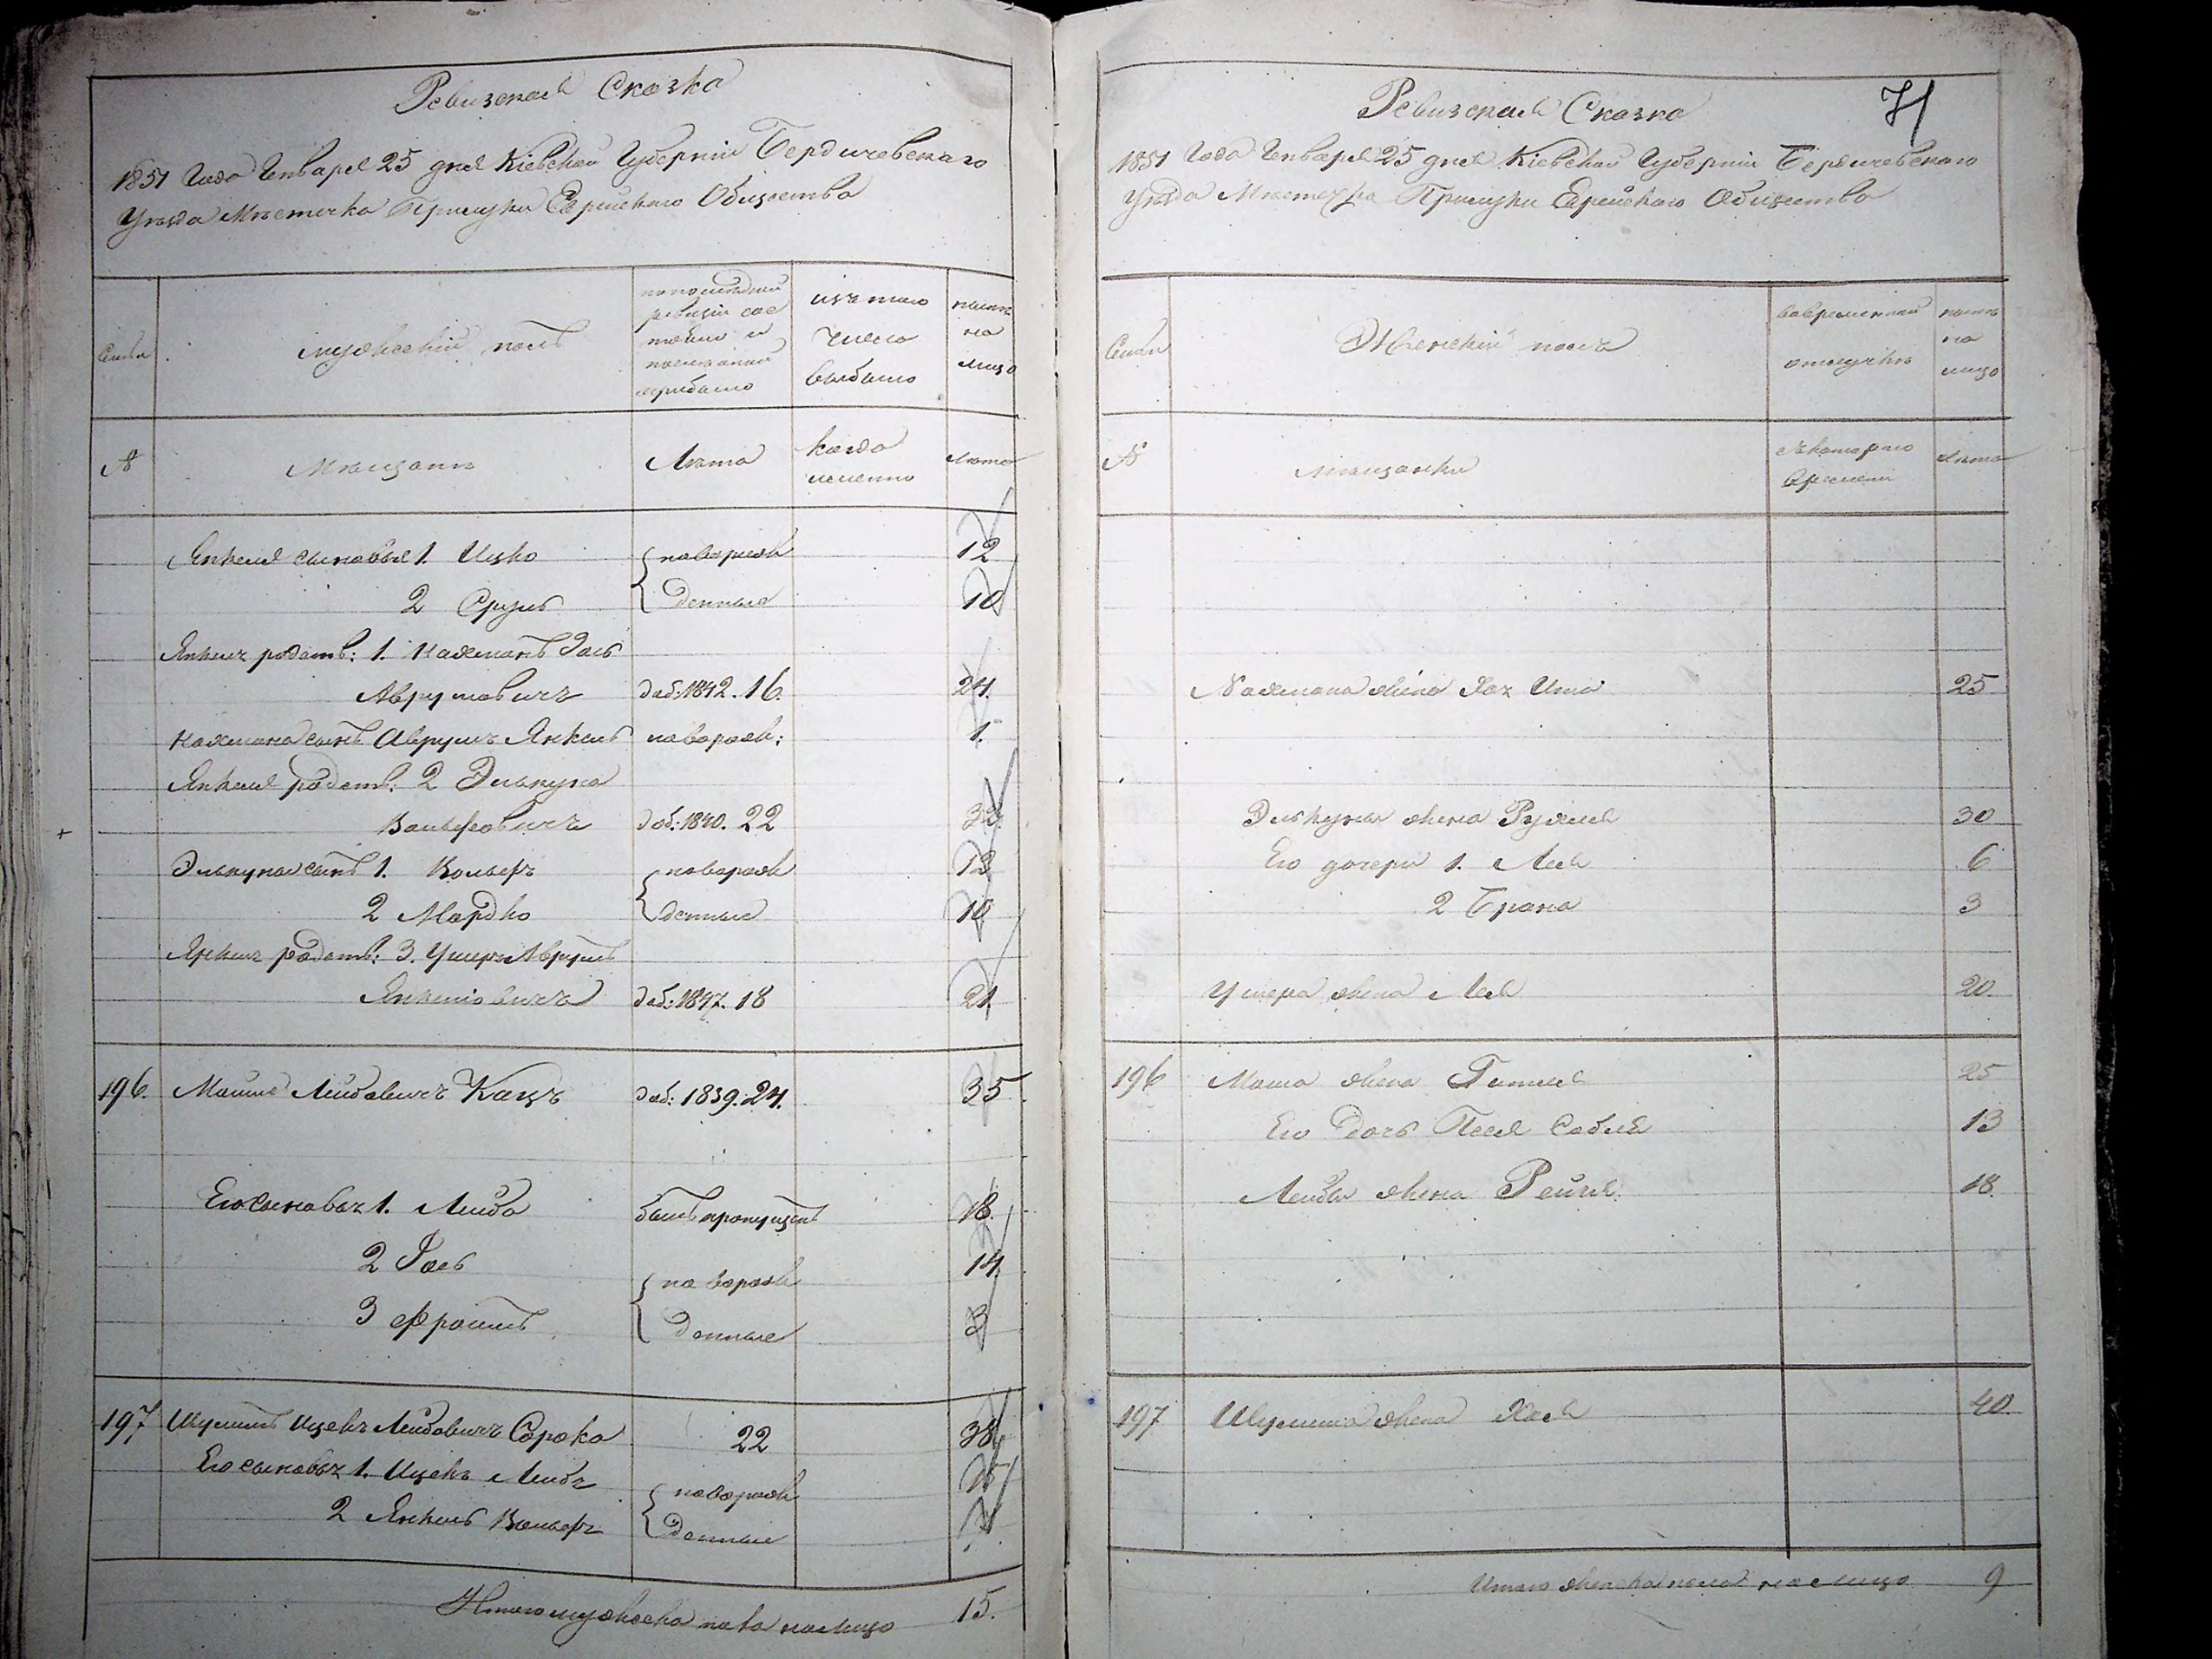 Ревизская Сказка
1851 Года Генваря 25 дня Кіевской Губерніи Бердичевскаго
Уезда Мѣстечка Прилуки Еврейскаго Общества
Семьи
мужескій полъ
по последней
ревизіи сос
тояло и
после оной
прибыло
изъ того
числа
выбыло
ныне
на
лицо
№
Мѣщане
Лѣта
когда
именно
Лѣта
Янкеля сыновья 1. Ицко
новорож
12
2 Сруль
денные
10
Янкеля родств: 1. Нахманъ Іось
Аврумовичъ
доб: 1842. 16.
24.
Нахмана сынъ Аврумъ Янкель
новорож:
1.
Янкеля родств: 2 Элькуна
Вольфовичъ
доб: 1840. 22
32
Элькуна сынъ 1. Вольфъ
новорож
12
2 Мордко
денные
10
Янкеля родств: 3. Ушеръ Аврумъ
Янкеліовичъ
доб: 1847. 18
21.
196. Мошко Лейбовичъ Кацъ
доб: 1839. 24.
35
Его сыновья 1. Лейба
былъ пропущенъ
18.
2 Іось
14.
новорож
3 Фроимъ
денные
3
197 Шулимъ Ицекъ Лейбовичъ Сорока
22
38
Его сыновья 1. Ицекъ Лейба
новорож
15
2 Янкель Вольфъ
денные
Итого мужеска пола на лицо 15.
Ревизская Сказка
71
1851 Года Генваря 25 дня Кіевской Губерніи Бердичевскаго
Уезда Мѣстечка Прилуки Еврейскаго Общества
Семьи
Женскій полъ
во временной
отлучкѣ
ныне
на
лицо
№
Мѣщанки
съ котораго
времени
Лѣта
Нахмана жена Хая Ита
25
Элькуны жена Рухля
30
Его дочери 1. Лея
6
2 Брана
3
Ушера жена Лея
20.
196 Мошка жена Гителя
25
Его дочь Песя Собля
13
Лейбы жена Рейзя
18.
197 Шулима жена Хая
40.
Итого женска пола на лицо 9